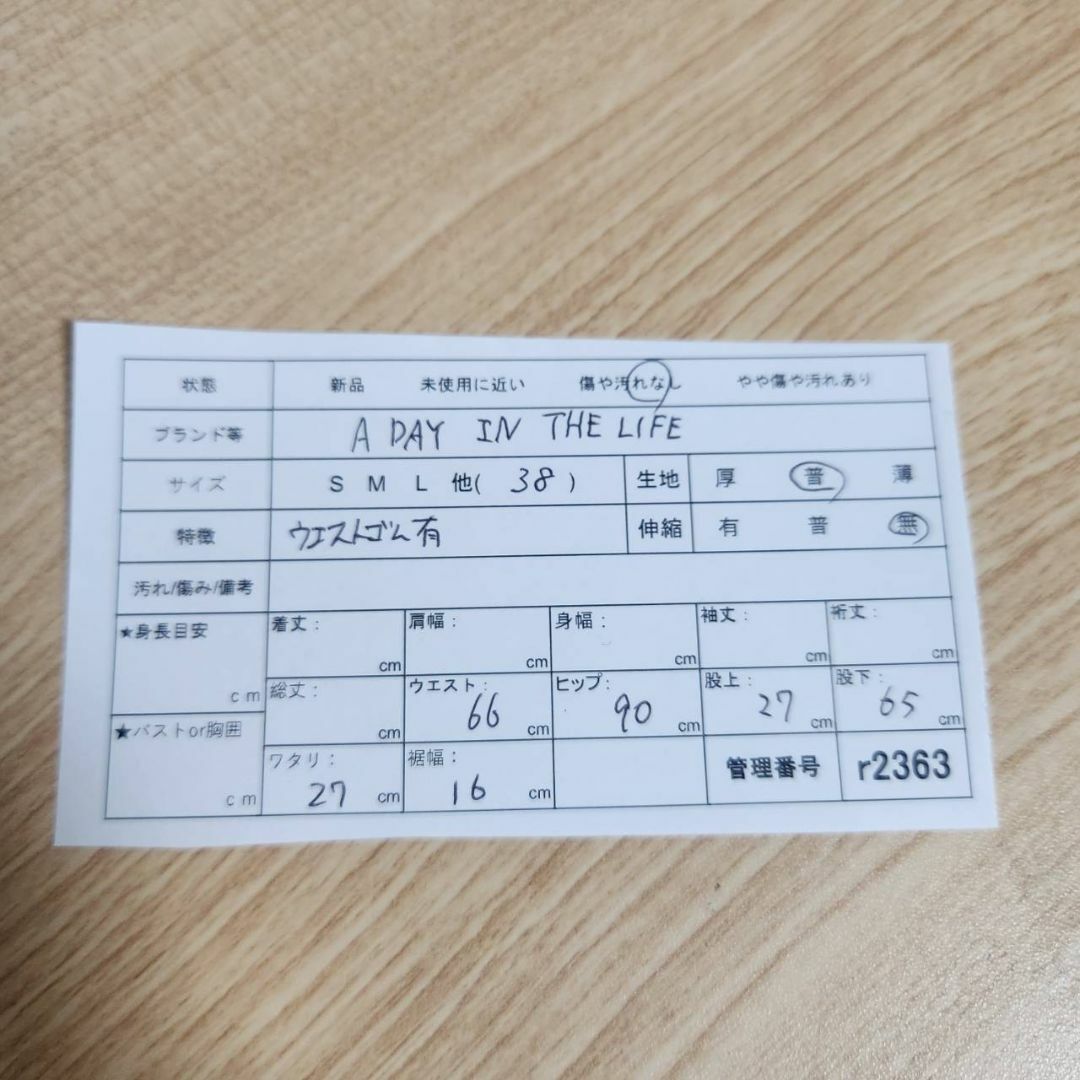 状態 新品 未使用に近い 傷や汚れなし やや傷や汚れあり
ブランド等 A DAY IN THE LIFE
サイズ S M L 他( 38 ) 生地 厚 普 薄
特徴 ウエストゴム有 伸縮 有 普 無
汚れ/傷み/備考
★身長目安 cm 着丈: cm 肩幅: cm 身幅: cm 袖丈: cm 裄丈: cm
総丈: cm ウエスト: 66 cm ヒップ: 90 cm 股上: 27 cm 股下: 65 cm
★バストor胸囲 cm ワタリ: 27 cm 裾幅: 16 cm 管理番号 r2363